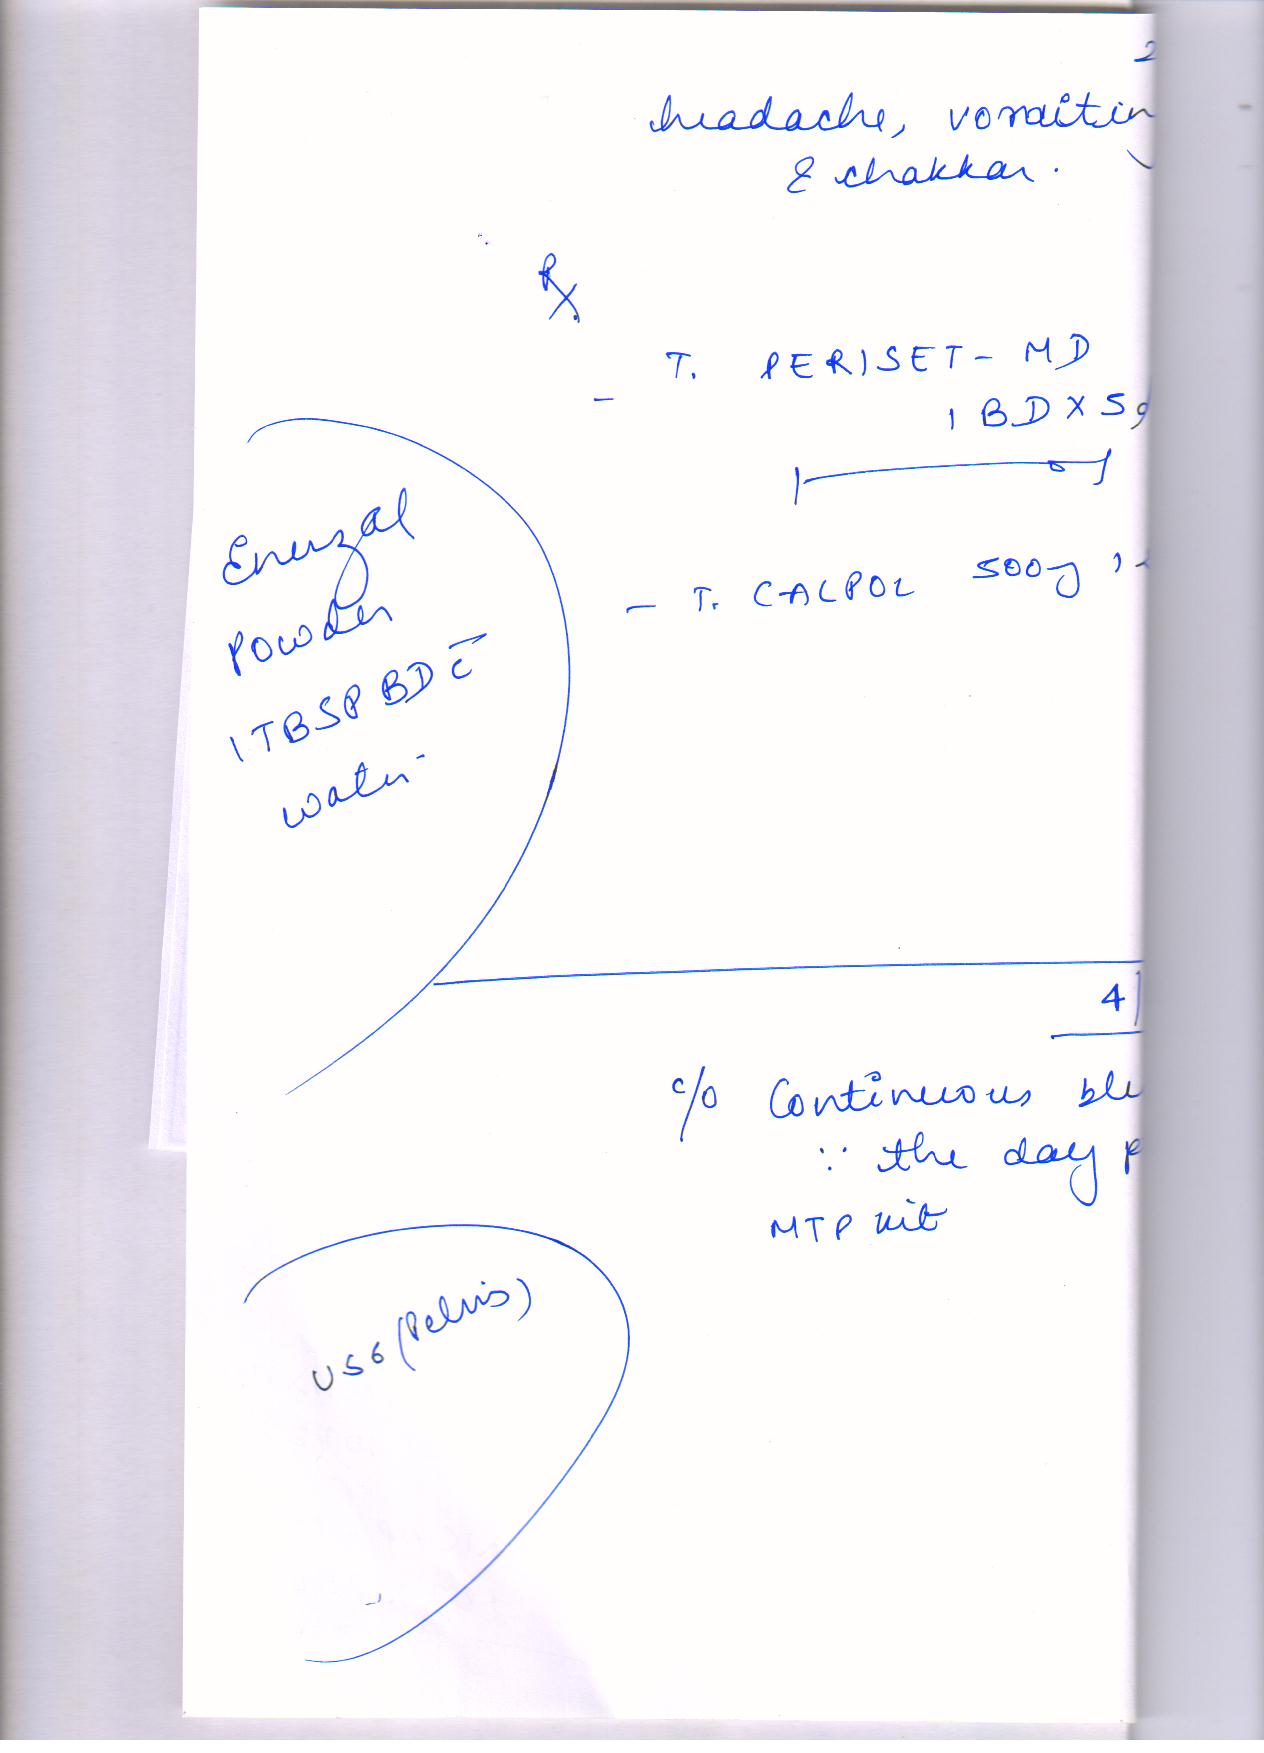 2
headache, vomitin
& chakkar.
Rx
- T. PERISET- MD
1 BD X 5d
- T. CALPOL 500g 1
Enerzal
Powder
1 TBSP BD c̄
water
4
c/o Continuous ble
∵ the day p
MTP kit
USG (Pelvis)